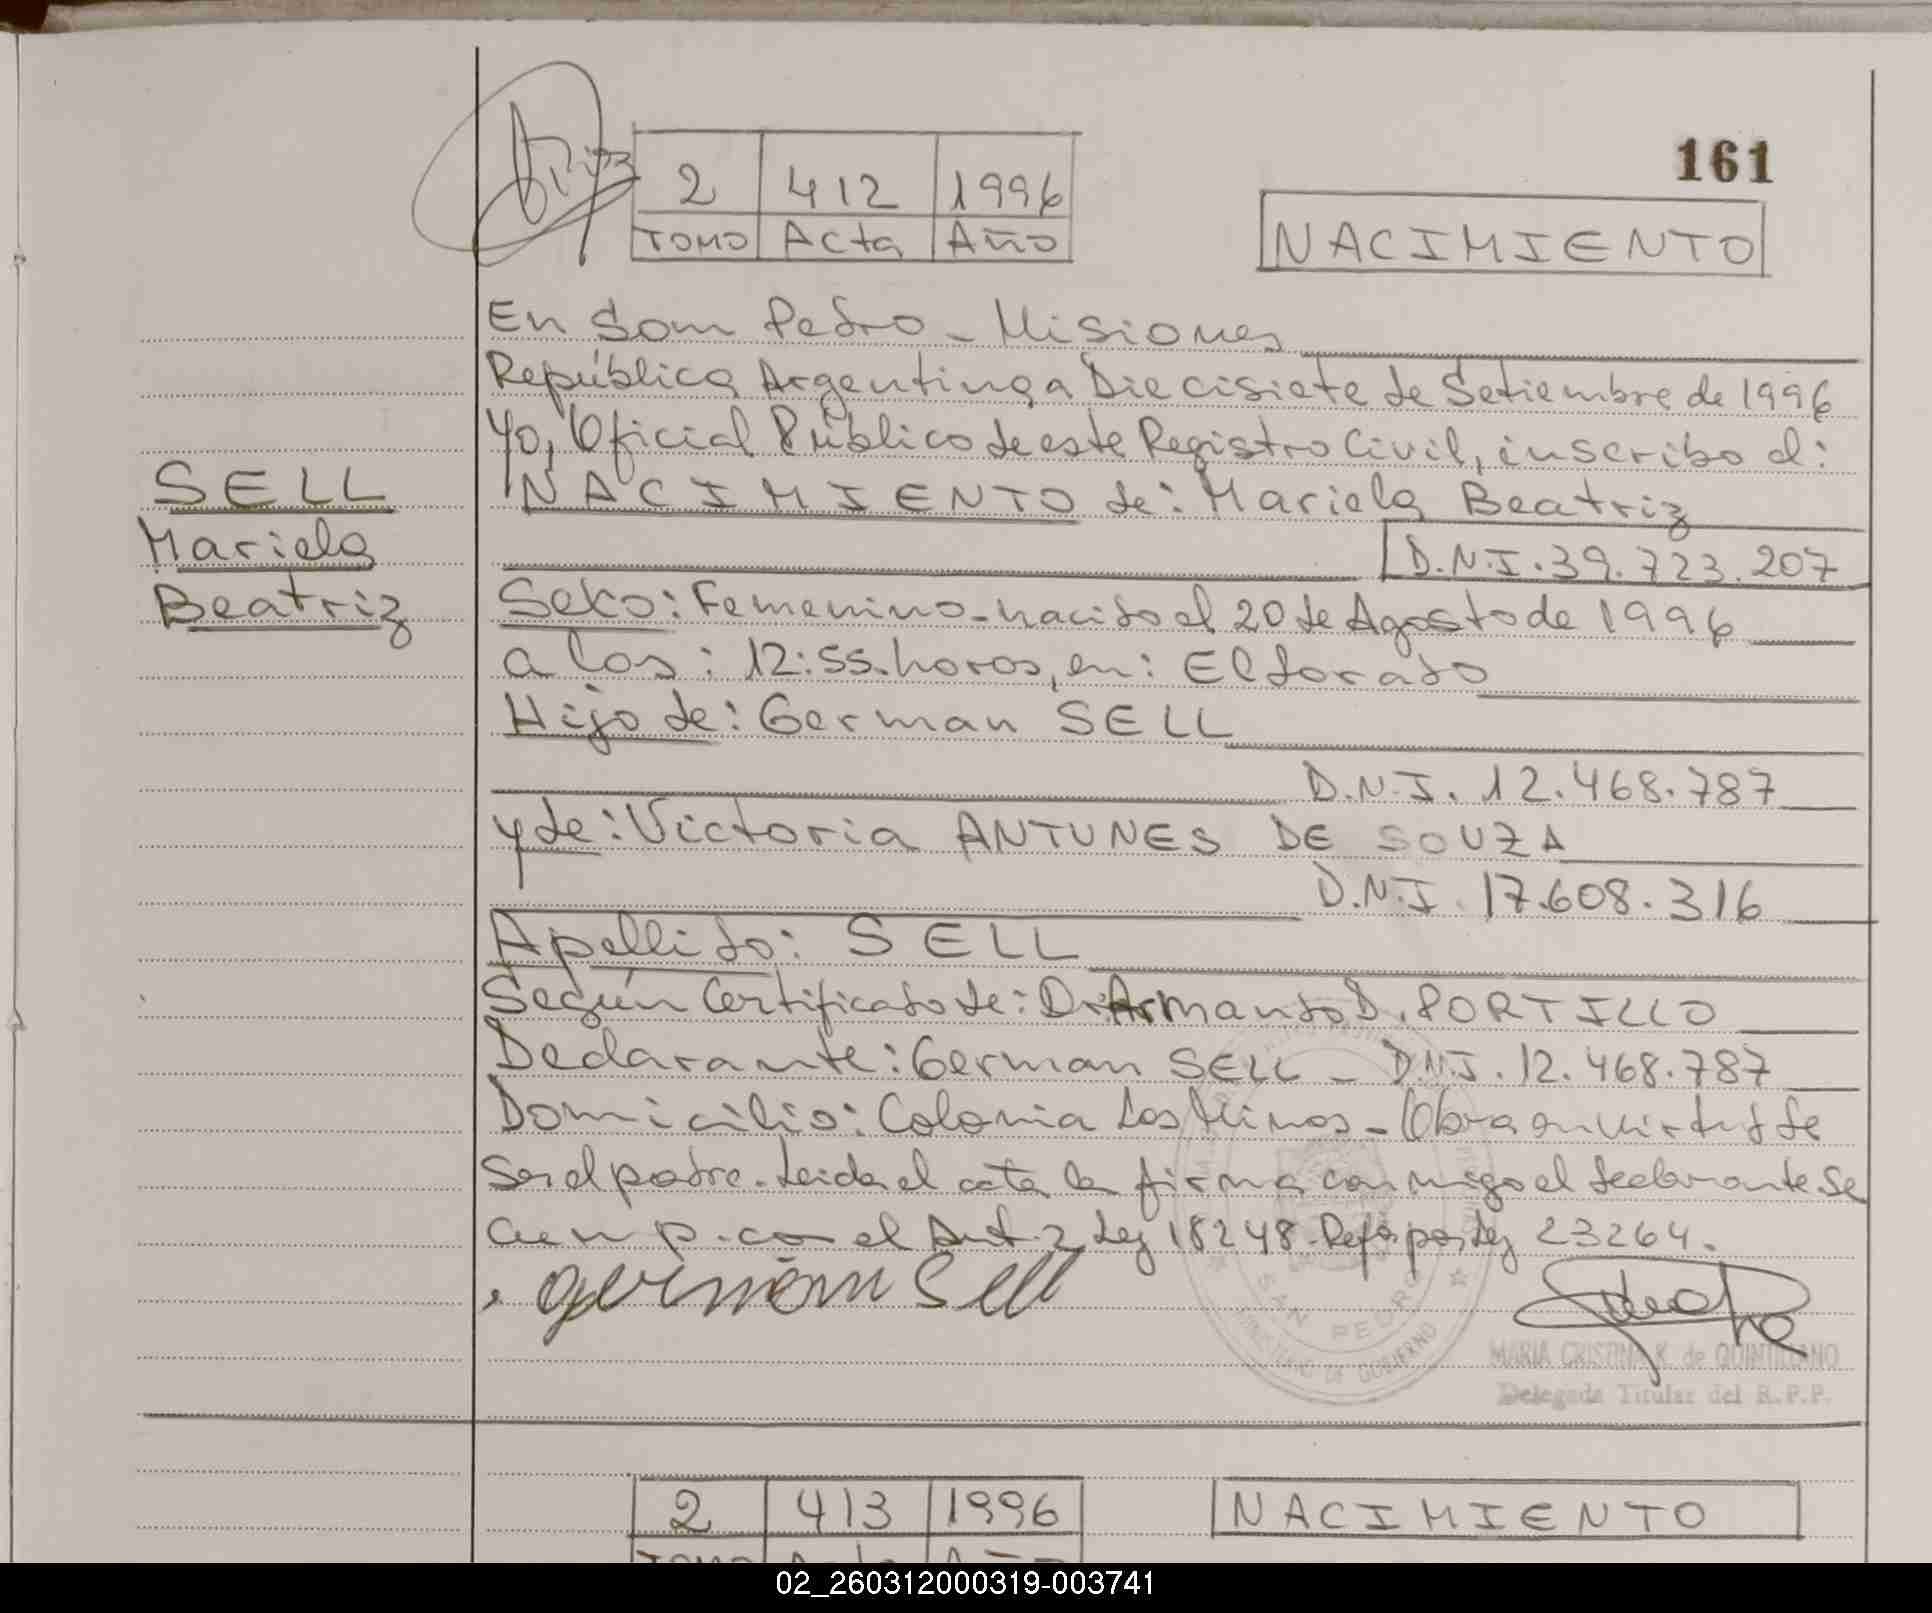 161
2 | 412 | 1996
TOMO | Acta | Año
NACIMIENTO
En San Pedro - Misiones
República Argentina, a Diecisiete de Setiembre de 1996
Yo, Oficial Público de este Registro Civil, inscribo el:
NACIMIENTO de: Mariela Beatriz
D.N.I. 39.723.207
Sexo: Femenino - nacido el 20 de Agosto de 1996
a las: 12:55. horas, en: Eldorado
Hijo de: German SELL
D.N.I. 12.468.787
y de: Victoria ANTUNES DE SOUZA
D.N.I. 17.608.316
Apellido: SELL
Según Certificado de: Dr. Armando D. PORTILLO
Declarante: German SELL - D.N.I. 12.468.787
Domicilio: Colonia Los Minos - Obra en virtud de
Ser el padre. Leida el acta la firma conmigo el declarante. Se
cump. con el Art 2 Ley 18248. Ref. por Ley 23264.
german Sell
SELL
Mariela
Beatriz
SAN PEDRO
MINISTERIO DE GOBIERNO
MARIA CRISTINA K. de QUINTILLANO
Delegada Titular del R.P.P.
2 | 413 | 1996
TOMO | Acta | Año
NACIMIENTO
02_260312000319-003741